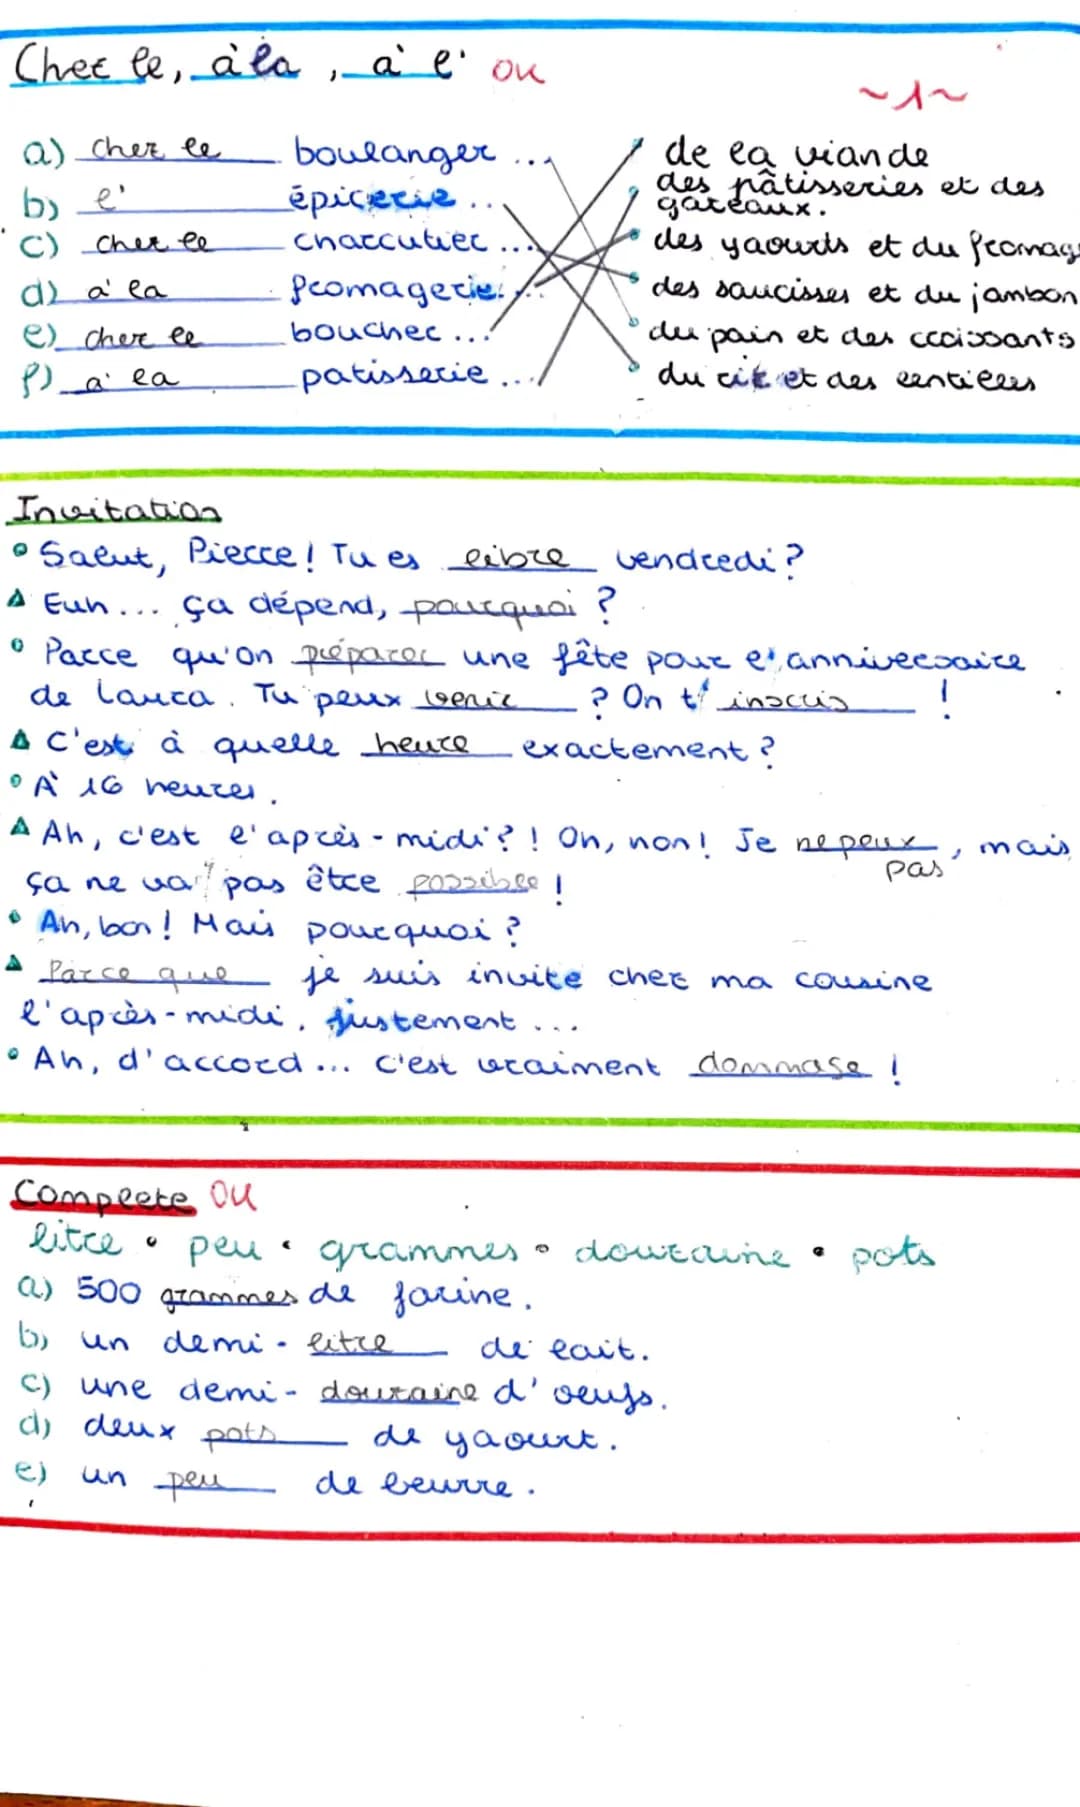 Chez le, à la, à l' ou
~1~
a) chez le boulanger ... de la viande
b) l' épicerie ... des pâtisseries et des gâteaux.
c) chez le charcutier ... des yaourts et du fromag
d) à la fromagerie ... des saucisses et du jambon
e) chez le boucher ... du pain et des croissants
f) à la patisserie ... du riz et des lentilles
Invitation
Salut, Pierre! Tu es libre vendredi?
Euh ... ça dépend, pourquoi ?
Parce qu'on préparer une fête pour l'anniversaire
de Laura. Tu peux venir ? On t'inscris !
C'est à quelle heure exactement?
À 16 heures.
Ah, c'est l'après-midi?! Oh, non! Je ne peux pas, mais
ça ne va pas être possible !
Ah, bon! Mais pourquoi?
Parce que je suis invite chez ma cousine
l'après-midi, justement ...
Ah, d'accord ... c'est vraiment dommase !
Complete OU
litre • peu • grammes • douzaine • pots
a) 500 grammes de farine.
b) un demi-litre de lait.
c) une demi-douzaine d'oeufs.
d) deux pots de yaourt.
e) un peu de beurre.